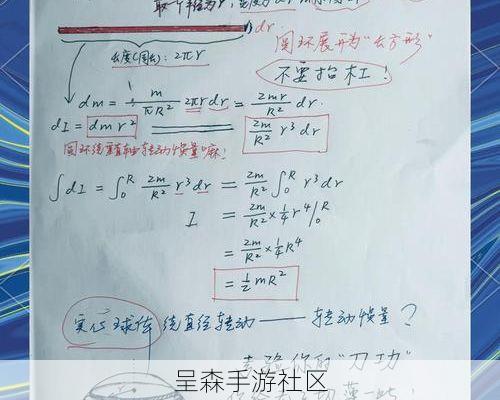 取一个半径为r, 宽度为dr
dr
长度(周长): 2πr
圆环展开为"长方形"
不要抬杠!
dm = m/πR² 2πr dr = 2mr/R² dr.
dI = dm r² = 2m/R² r³ dr
圆环绕垂直轴转动惯量嘛!
∫dI = ∫₀ᴿ 2m/R² r³ dr = 2m/R² ∫₀ᴿ r³ dr
I = 2m/R² × 1/4 r⁴ |₀ᴿ
= 2m/R² × 1/4 R⁴
= 1/2 mR²
实心球体绕直径转动——转动惯量?
考验你的"刀功"
呈森手游社区